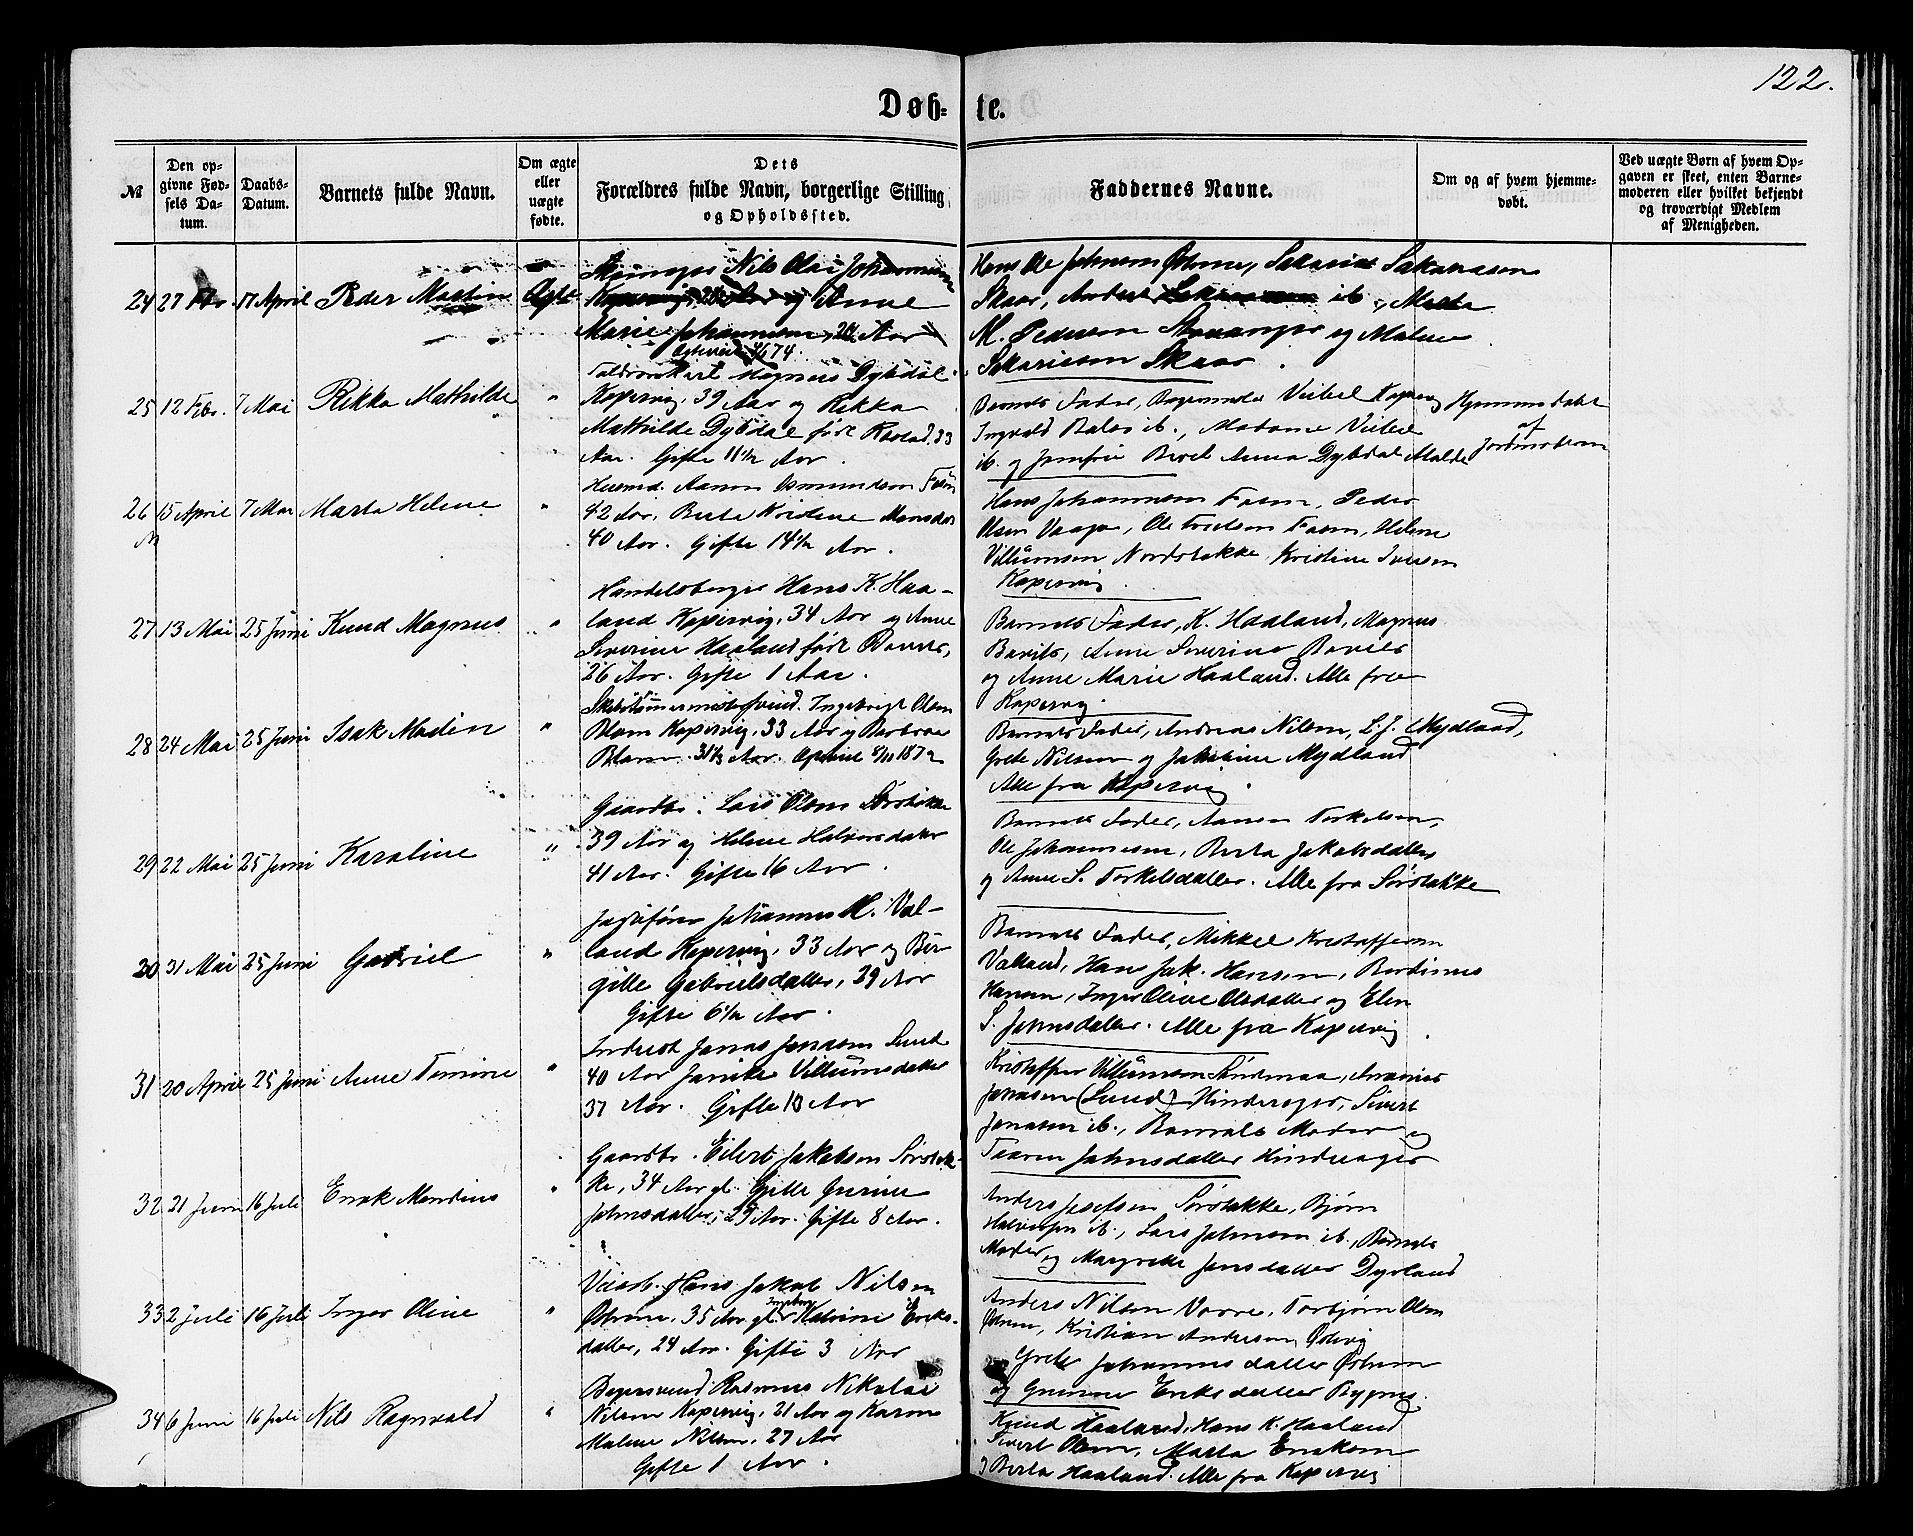 122.
Døb- te.
№
Den opgivne Fødsels Datum.
Daabs-Datum.
Barnets fulde Navn.
Om ægte eller uægte fødte.
Dets Forældres fulde Navn, borgerlige Stilling og Opholdssted.
Faddernes Navne.
Om og af hvem hjemmedøbt.
Ved uægte Børn af hvem Opgaven er skeet, enten Barnemoderen eller hvilket bekjendt og troværdigt Medlem af Menigheden.
24 27 Fbr. 17 April Peder Martin Ægte
Nils Olai Johannesen
Kopervig, og Anne
Marie Johannesen, 24 Aar
Hans Ole Johnsen Østrem, Sakarias Sakariasen
Skaar, Anders ib., Marta
M. Pedersen Stavanger og Malene
Sakariasen Skaar.
25 12 Fbr. 7 Mai Rikka Mathilde "
Magnus Dybdal
Kopervig, 39 Aar og Rikka
Mathilde Dybdal født 33
Aar. Gifte 11½ Aar.
Barnets Fader, Vibel Kopervig
Ingvald ib., Madame Vibel
ib. og Jomfru Beret Anna Dybdal Malde
Hjemmedøbt
af
Jordmoderen
26 15 April 7 Mai Marta Helene "
Husmd. Aanen Osmundsen Fosen
42 Aar, Berta Kristine Monsdtr
40 Aar. Gifte 14½ Aar.
Hans Johannesen Fosen, Peder
Olsen Vaage, Ole Fosen, Helene
Villumsen Nordstokke, Kristine Iversen
Kopervig.
27 13 Mai 25 Juni Knud Magnus "
Handelsborger Hans K. Haa-
land Kopervig, 34 Aar og Anne
Severine Haaland født
26 Aar. Gifte 1 Aar.
Barnets Fader, K. Haaland, Magnus
Anne Severine
og Anne Marie Haaland. Alle fra
Kopervig.
28 24 Mai 25 Juni Isak Modin "
Ingebrigt Olsen
Blom Kopervig, 33 Aar og Barbroe
Blom 31½ Aar. 1872
Barnets Fader, Andreas Nilsen, L. J. Mydland,
Grete Nilsen og Jakobine Mydland
Alle fra Kopervig.
29 22 Mai 25 Juni Karoline "
Gaardbr. Lars Olsen Sørstokke
39 Aar og Helene Halvorsdatter
41 Aar. Gifte 16 Aar.
Barnets Fader, Aanen Torkelsen,
Ole Johannesen, Berta Jakobsdatter
og Anne S. Torkelsdatter. Alle fra Sørstokke
30 31 Mai 25 Juni Gabriel "
Jagtfører Johannes M. Val-
land Kopervig, 33 Aar og Ber-
gitte Gabrielsdatter, 39 Aar
Gifte 6½ Aar.
Barnets Fader, Mikkel Kristoffersen
Valland, Hans Jak. Hansen, Berdinus
Hansen, Inger Oline Olsdatter og Elen
S. Johnsdatter. Alle fra Kopervig.
31 20 April 25 Juni Anne Tomine "
Inderst Jonas Jonasen Lund
40 Aar Janike Villumsdatter
37 Aar. Gifte 13 Aar
Kristoffer Villumsen Ananias
Johnsen (Lund) Hinderager, Sivert
Jonasen ib., Barnets Moder og
Taaren Johnsdatter Hinderager
32 21 Juni 16 Juli Enok Mandius "
Gaardbr. Eilert Jakobsen Sørstok-
ke, 34 Aar gl. Gitle Gurine
Johnsdatter, 29 Aar. Gifte 8 Aar.
Anders Josefsen Sørstokke, Bjørn
Halvorsen ib., Lars Johnsen ib., Barnets
Moder og Margrete Jonsdatter Dyrland
33 2 Juli 16 Juli Inger Oline "
Hans Jakob Nilsen
Østrem, 35 Aar gl. Ingeborg Katrine Eriks-
datter, 24 Aar. Gifte 3 Aar
Anders Nilsen Vorre, Torbjørn Olsen
Østrem, Kristian Andersen Østvig
Grete Johannesdatter Østrem
og Gunnor Eriksdatter Bygnes.
34 6 Juni 16 Juli Nils Ragnvald "
Bøgersvend Rasmus Nikolai
Nilsen Kopervig, 21 Aar og Karen
Malene Nilsen, 27 Aar
Gifte 1 Aar.
Knud Haaland, Hans K. Haaland
Sivert Olsen, Marta Enoksen
og Berta Haaland. Alle fra Kopervig